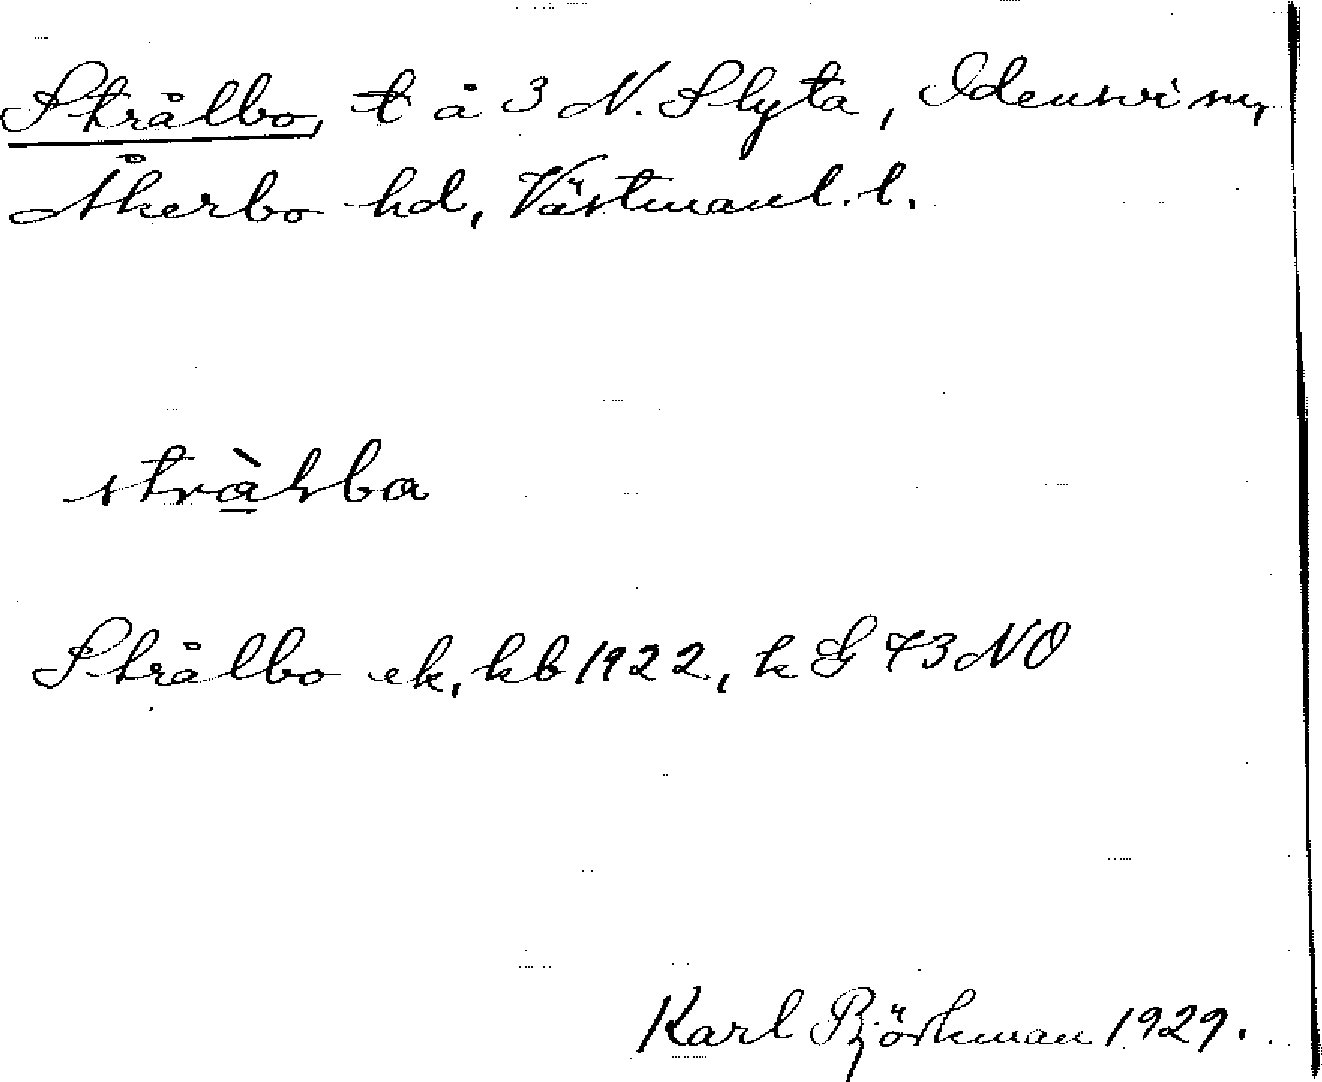 Strålbo, t å 3 N. Slyta, Odensvi sn,
Åkerbo hd, Västmanl. l.
Strålbo ek, kb 1922, k G 73 NO
Karl Björkman 1929.